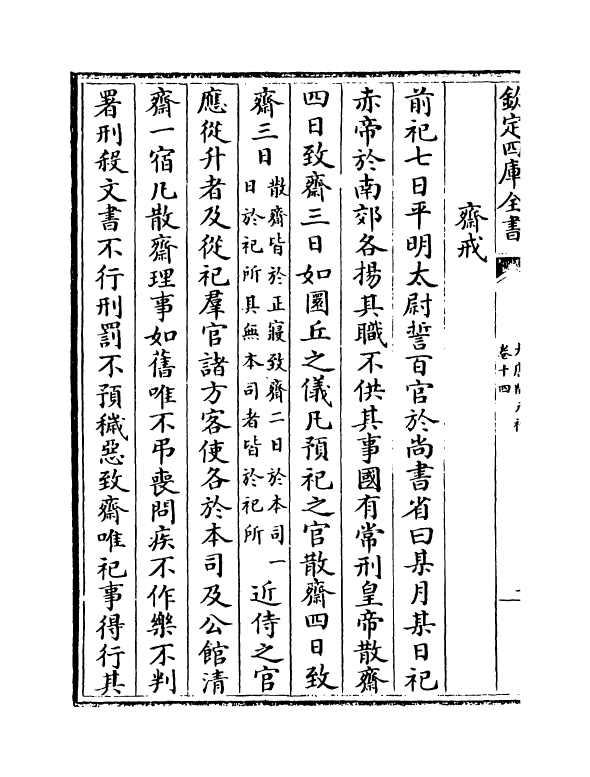 欽定四庫全書
卷十四
齋戒
前祀七日平明太尉誓百官於尚書省曰某月某日祀
赤帝於南郊各揚其職不供其事國有常刑皇帝散齋
四日致齋三日如圜丘之儀凡預祀之官散齋四日致
齋三日散齋皆於正寢致齋二日於本司一日於祀所其無本司者皆於祀所近侍之官
應從升者及從祀羣官諸方客使各於本司及公館清
齋一宿凡散齋理事如舊唯不弔喪問疾不作樂不判
署刑殺文書不行刑罰不預穢惡致齋唯祀事得行其